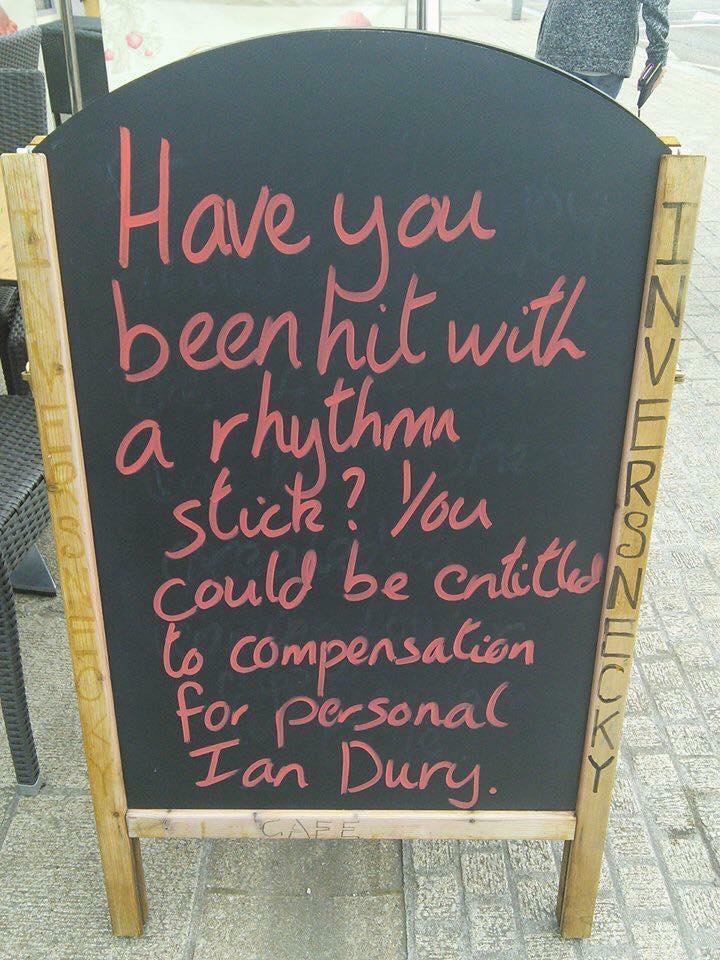 Have you
been hit with
a rhythm
stick? You
could be entitled
to compensation
for personal
Ian Dury.
INVERSNECKY
INVERSNECKY
CAFE